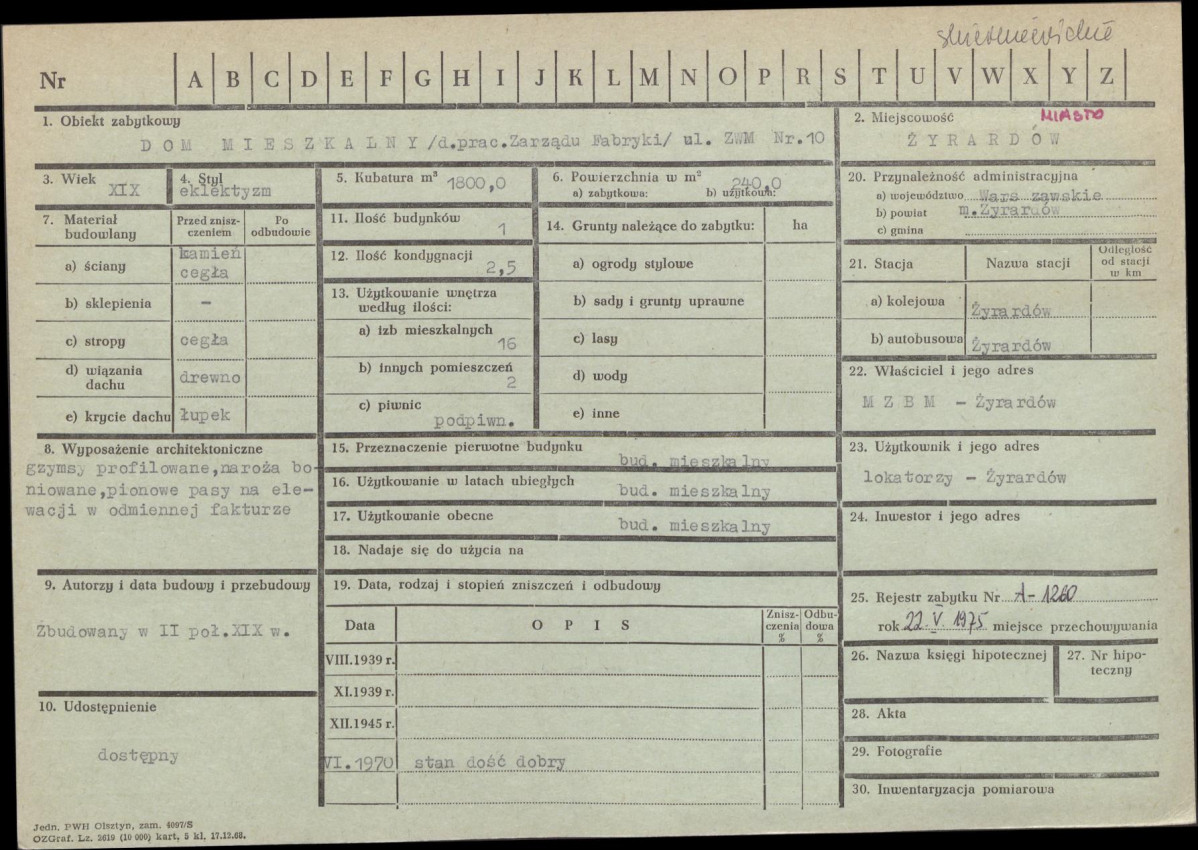 skierniewickie
Nr A B C D E F G H I J K L M N O P R S T U V W X Y Z
1. Obiekt zabytkowy
D O M M I E S Z K A L N Y /d.prac.Zarządu Fabryki/ ul. ZWM Nr.10
2. Miejscowość MIASTO
Ż Y R A R D Ó W
3. Wiek
XIX
4. Styl
eklektyzm
5. Kubatura m³ 1800,0
6. Powierzchnia w m² 240,0
a) zabytkowa: b) użytkowa:
20. Przynależność administracyjna
a) województwo Wars zawskie
b) powiat m.Żyrardów
c) gmina
7. Materiał budowlany
Przed znisz-
czeniem
Po
odbudowie
a) ściany kamień
cegła
b) sklepienia –
c) stropy cegła
d) wiązania
dachu drewno
e) krycie dachu łupek
11. Ilość budynków
1
12. Ilość kondygnacji
2,5
13. Użytkowanie wnętrza
według ilości:
a) izb mieszkalnych
16
b) innych pomieszczeń
2
c) piwnic
podpiwn.
14. Grunty należące do zabytku: ha
a) ogrody stylowe
b) sady i grunty uprawne
c) lasy
d) wody
e) inne
21. Stacja Nazwa stacji
Odległość
od stacji
w km
a) kolejowa Żyrardów
b) autobusowa Żyrardów
22. Właściciel i jego adres
M Z B M – Żyrardów
8. Wyposażenie architektoniczne
gzymsy profilowane,naroża bo-
niowane,pionowe pasy na ele-
wacji w odmiennej fakturze
15. Przeznaczenie pierwotne budynku
bud. mieszkalny
16. Użytkowanie w latach ubiegłych bud. mieszkalny
17. Użytkowanie obecne bud. mieszkalny
18. Nadaje się do użycia na
23. Użytkownik i jego adres
lokatorzy – Żyrardów
24. Inwestor i jego adres
9. Autorzy i data budowy i przebudowy
Zbudowany w II poł.XIX w.
19. Data, rodzaj i stopień zniszczeń i odbudowy
Data O P I S
Znisz-
czenia
%
Odbu-
dowa
%
VIII.1939 r.
XI.1939 r.
XII.1945 r.
VI.1970 stan dość dobry
25. Rejestr zabytku Nr A-1260
rok 22.V.1975 miejsce przechowywania
26. Nazwa księgi hipotecznej
27. Nr hipo-
teczny
10. Udostępnienie
dostępny
28. Akta
29. Fotografie
30. Inwentaryzacja pomiarowa
Jedn. PWH Olsztyn, zam. 4097/S
OZGraf. Lz. 2619 (10 000) kart. 5 kl. 17.12.68.